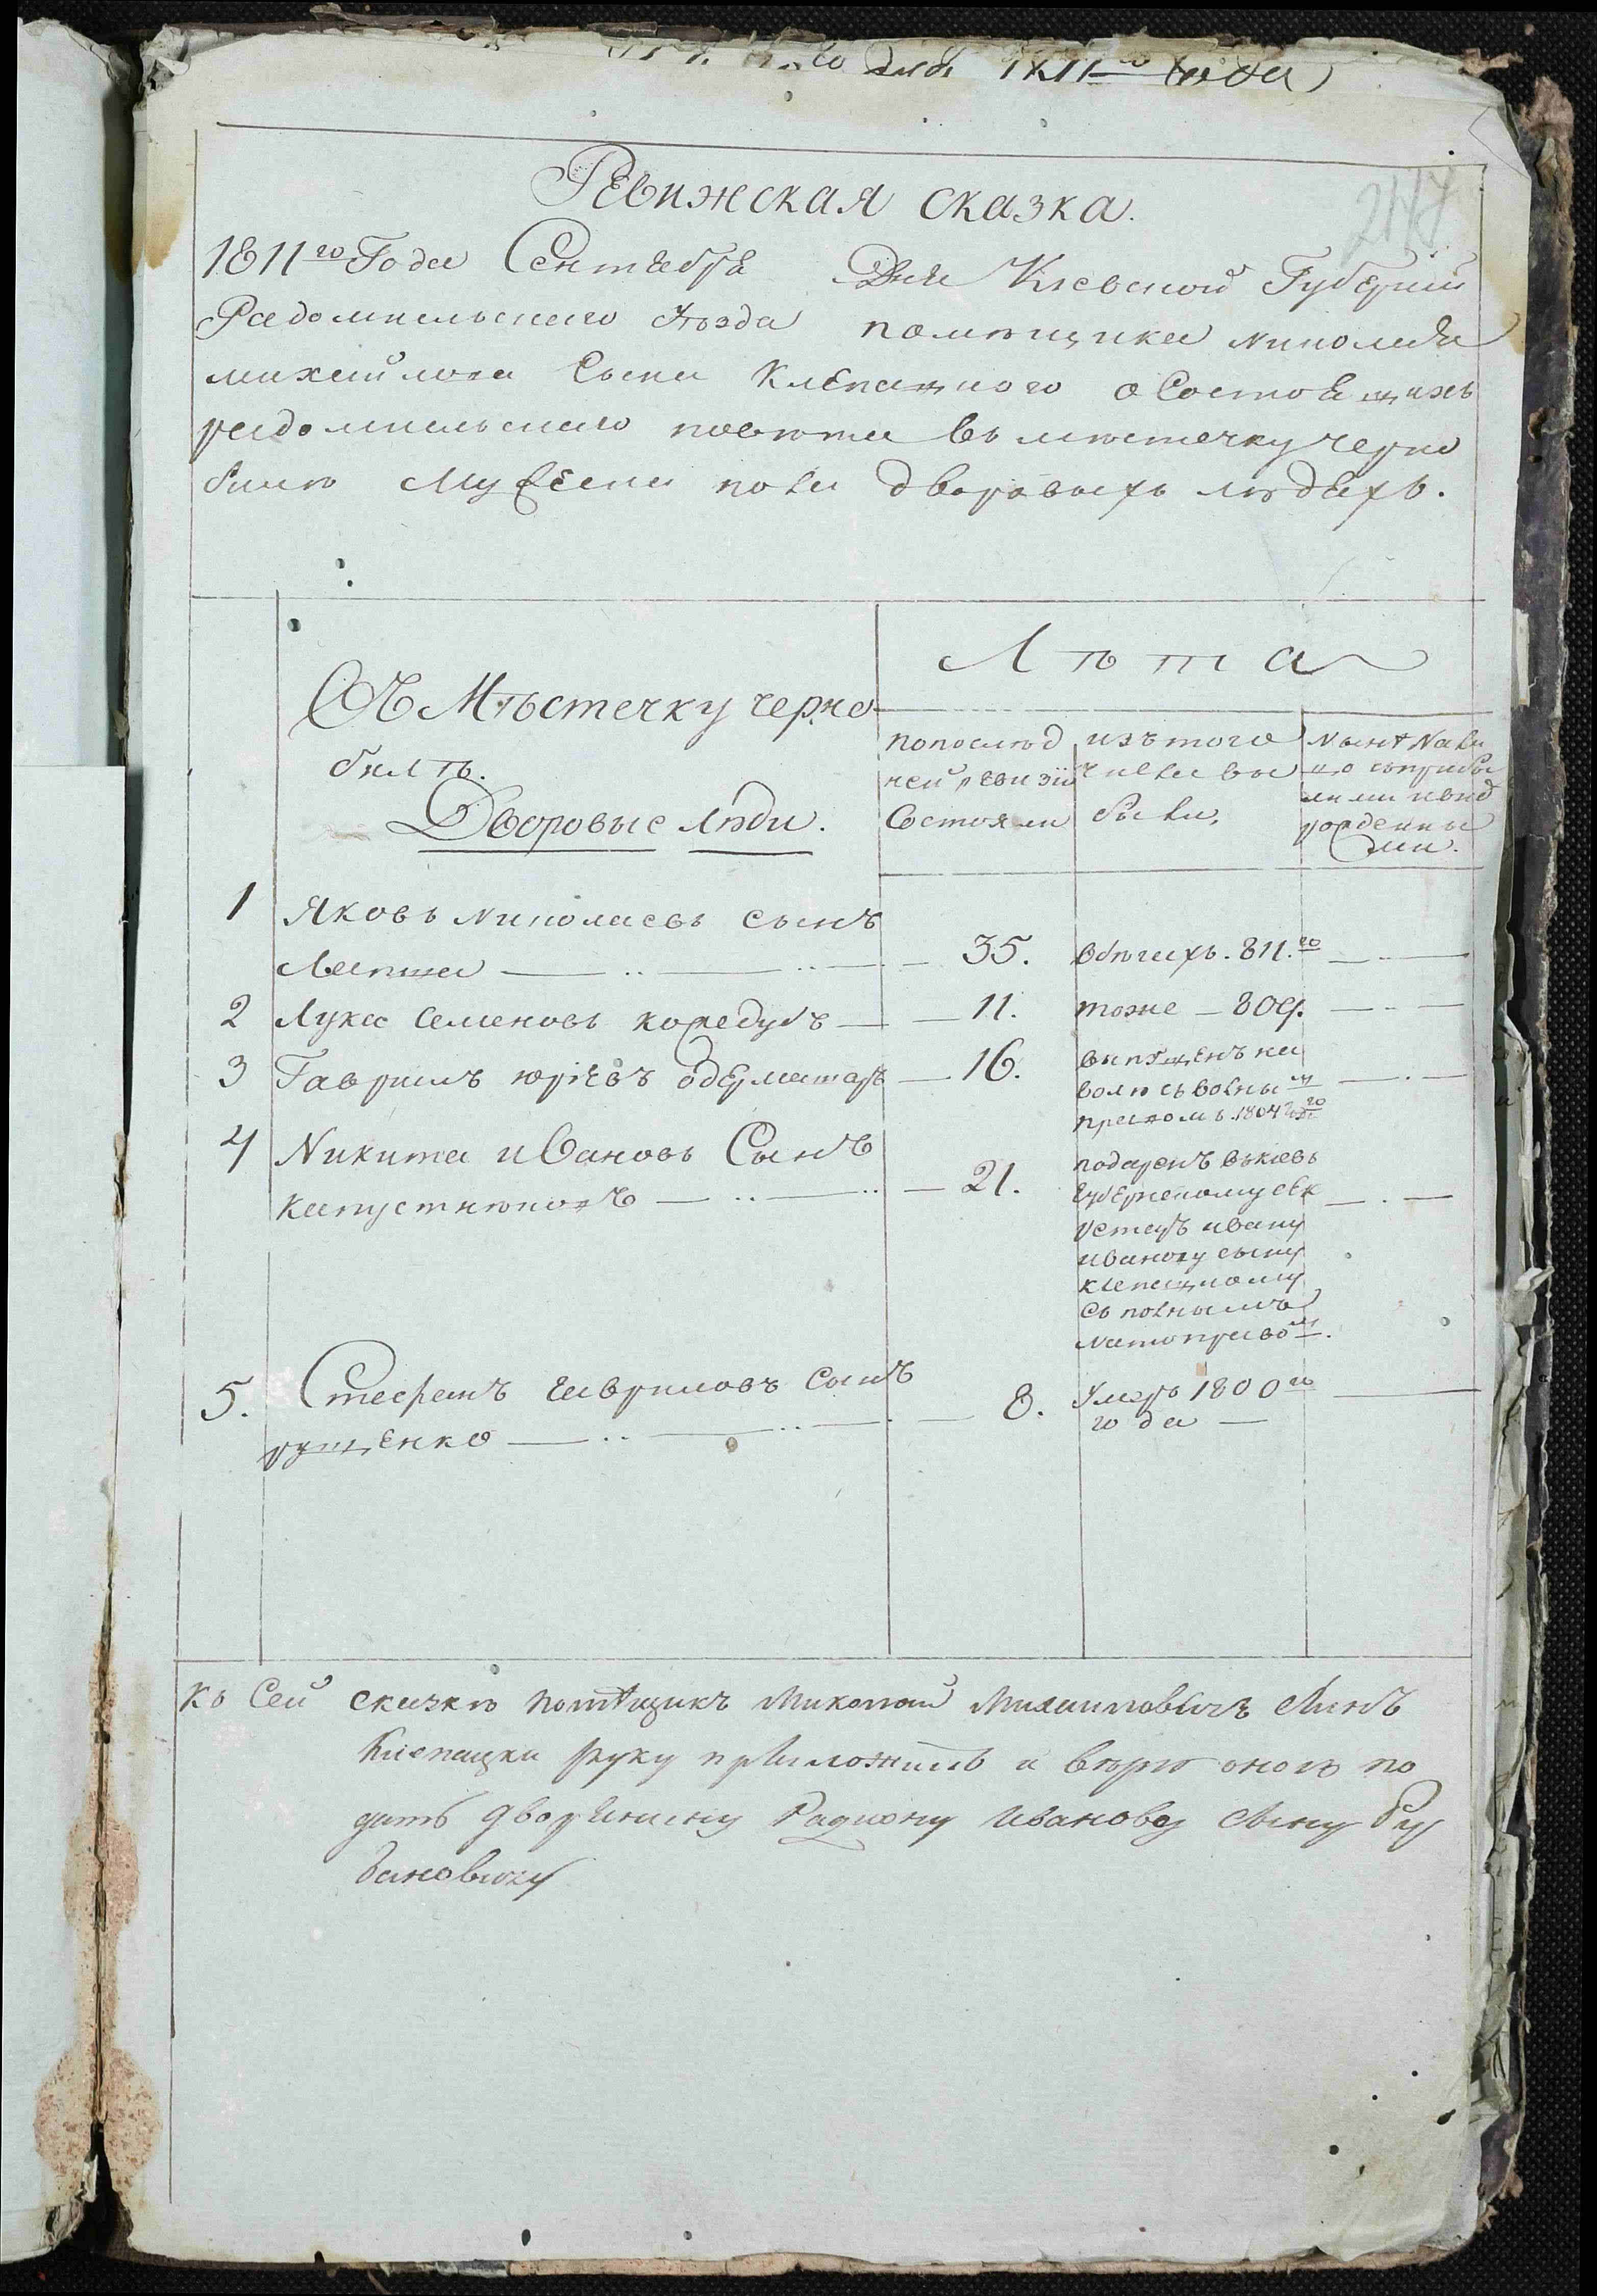 дня 1811го года
Ревижская сказка.
1811го Года Сентября Дня Киевской Губернии
Радомысльского Уезда помѣщика Николая
михайлова Сына Клепацкого о Состоящихъ
радомысльского повѣта въ мѣстечку черно
билѣ Мужеска пола дворовыхъ людяхъ.
247
Въ Мѣстечку черно
билѣ.
Дворовые люди.
Лѣта
попослѣд
ней ревизіи
Состояли
изъ того
числа вы
были,
Нынѣ на ли
цо съприбы
лыми иввд
рожденны
ми.
1 Яковъ Николаевъ сынъ
Лапша 35. вбѣгахъ. 811.го
2 Лука Семеновъ коледубъ 11. тоже 809.
3 Гаврилъ юріевъ 16. выпущенъ на
волю съ волны м
правомъ 1804 го
4 Никита ивановъ Сынъ
21. подаренъ вкіевѣ
губернскому сек
ретарѣ ивану
иванову сыну
клепацкому
съ полнымъ
нато право м.
5. Стефанъ гавриловъ сынъ
рущенко 8. Умеръ 1800го
года
Къ Сей сказкѣ помѣщикъ Миколай Михаиловичъ Синъ
Клепацки руку приложилъ и вѣрю оною по
дать дворянину Радиону Иванову сыну Бу
бановичу